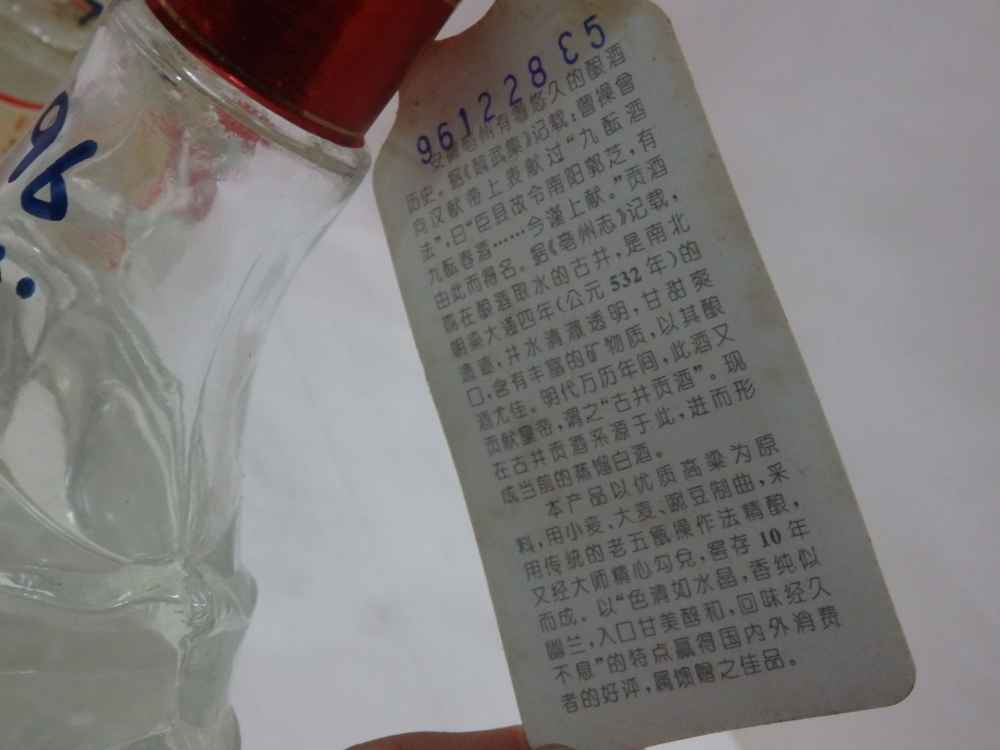 96
9612283 5
安徽亳州有着悠久的酿酒
历史。据《魏武集》记载：曹操曾
向汉献帝上表献过“九酝酒
法”，曰“臣县故令南阳郭芝，有
九酝春酒……今谨上献。”贡酒
由此而得名。据《亳州志》记载，
现在酿酒取水的古井，是南北
朝梁大通四年（公元532年）的
遗迹，井水清澈透明，甘甜爽
口，含有丰富的矿物质，以其酿
酒尤佳。明代万历年间，此酒又
贡献皇帝，谓之“古井贡酒”。现
在古井贡酒系源于此，进而形
成当前的蒸馏白酒。
本产品以优质高粱为原
料，用小麦、大麦、豌豆制曲，采
用传统的老五甑操作法精酿，
又经大师精心勾兑，窖存10年
而成。以“色清如水晶，香纯似
幽兰，入口甘美醇和，回味经久
不息”的特点赢得国内外消费
者的好评，属馈赠之佳品。